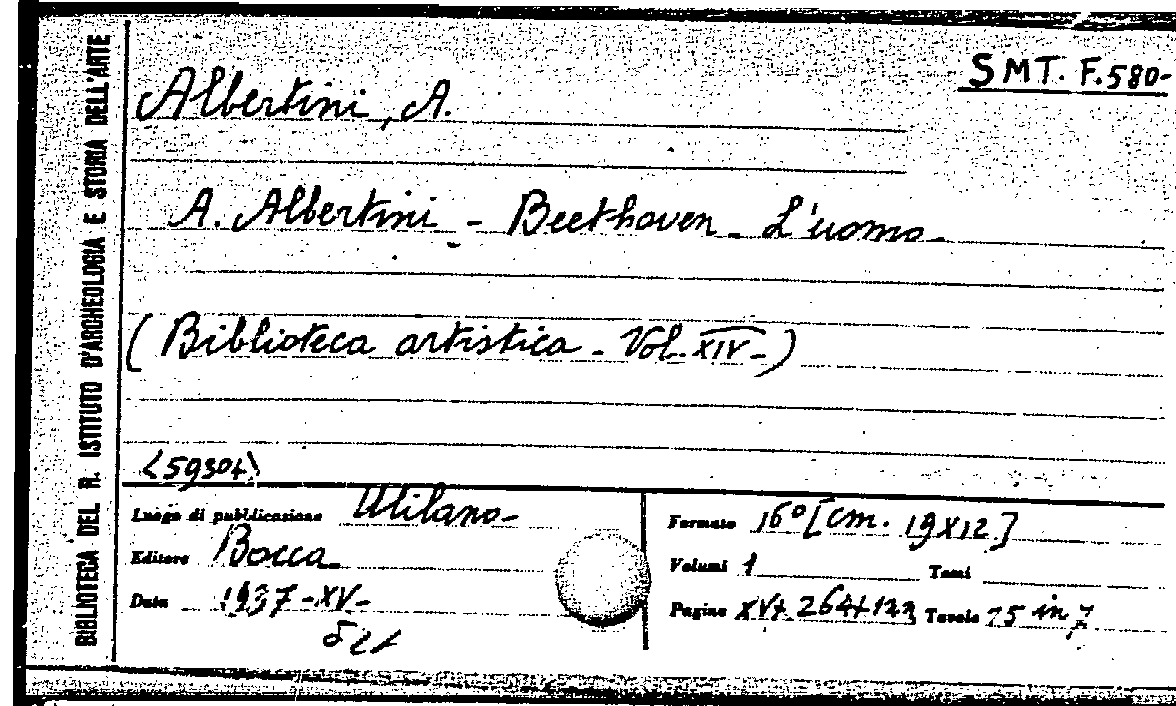 BIBLIOTECA DEL R. ISTITUTO D'ARCHEOLOGIA E STORIA DELL'ARTE
SMT. F. 580-
Albertini, A.
A. Albertini - Beethoven - L'uomo -
( Biblioteca artistica - Vol. XIV - )
Luogo di pubblicazione Milano -
Editore Bocca
Data 1937-XV-
Formato 16° [cm. 19x12]
Volumi 1 Tomi
Pagine XV+ 264+ Tavole 15 in